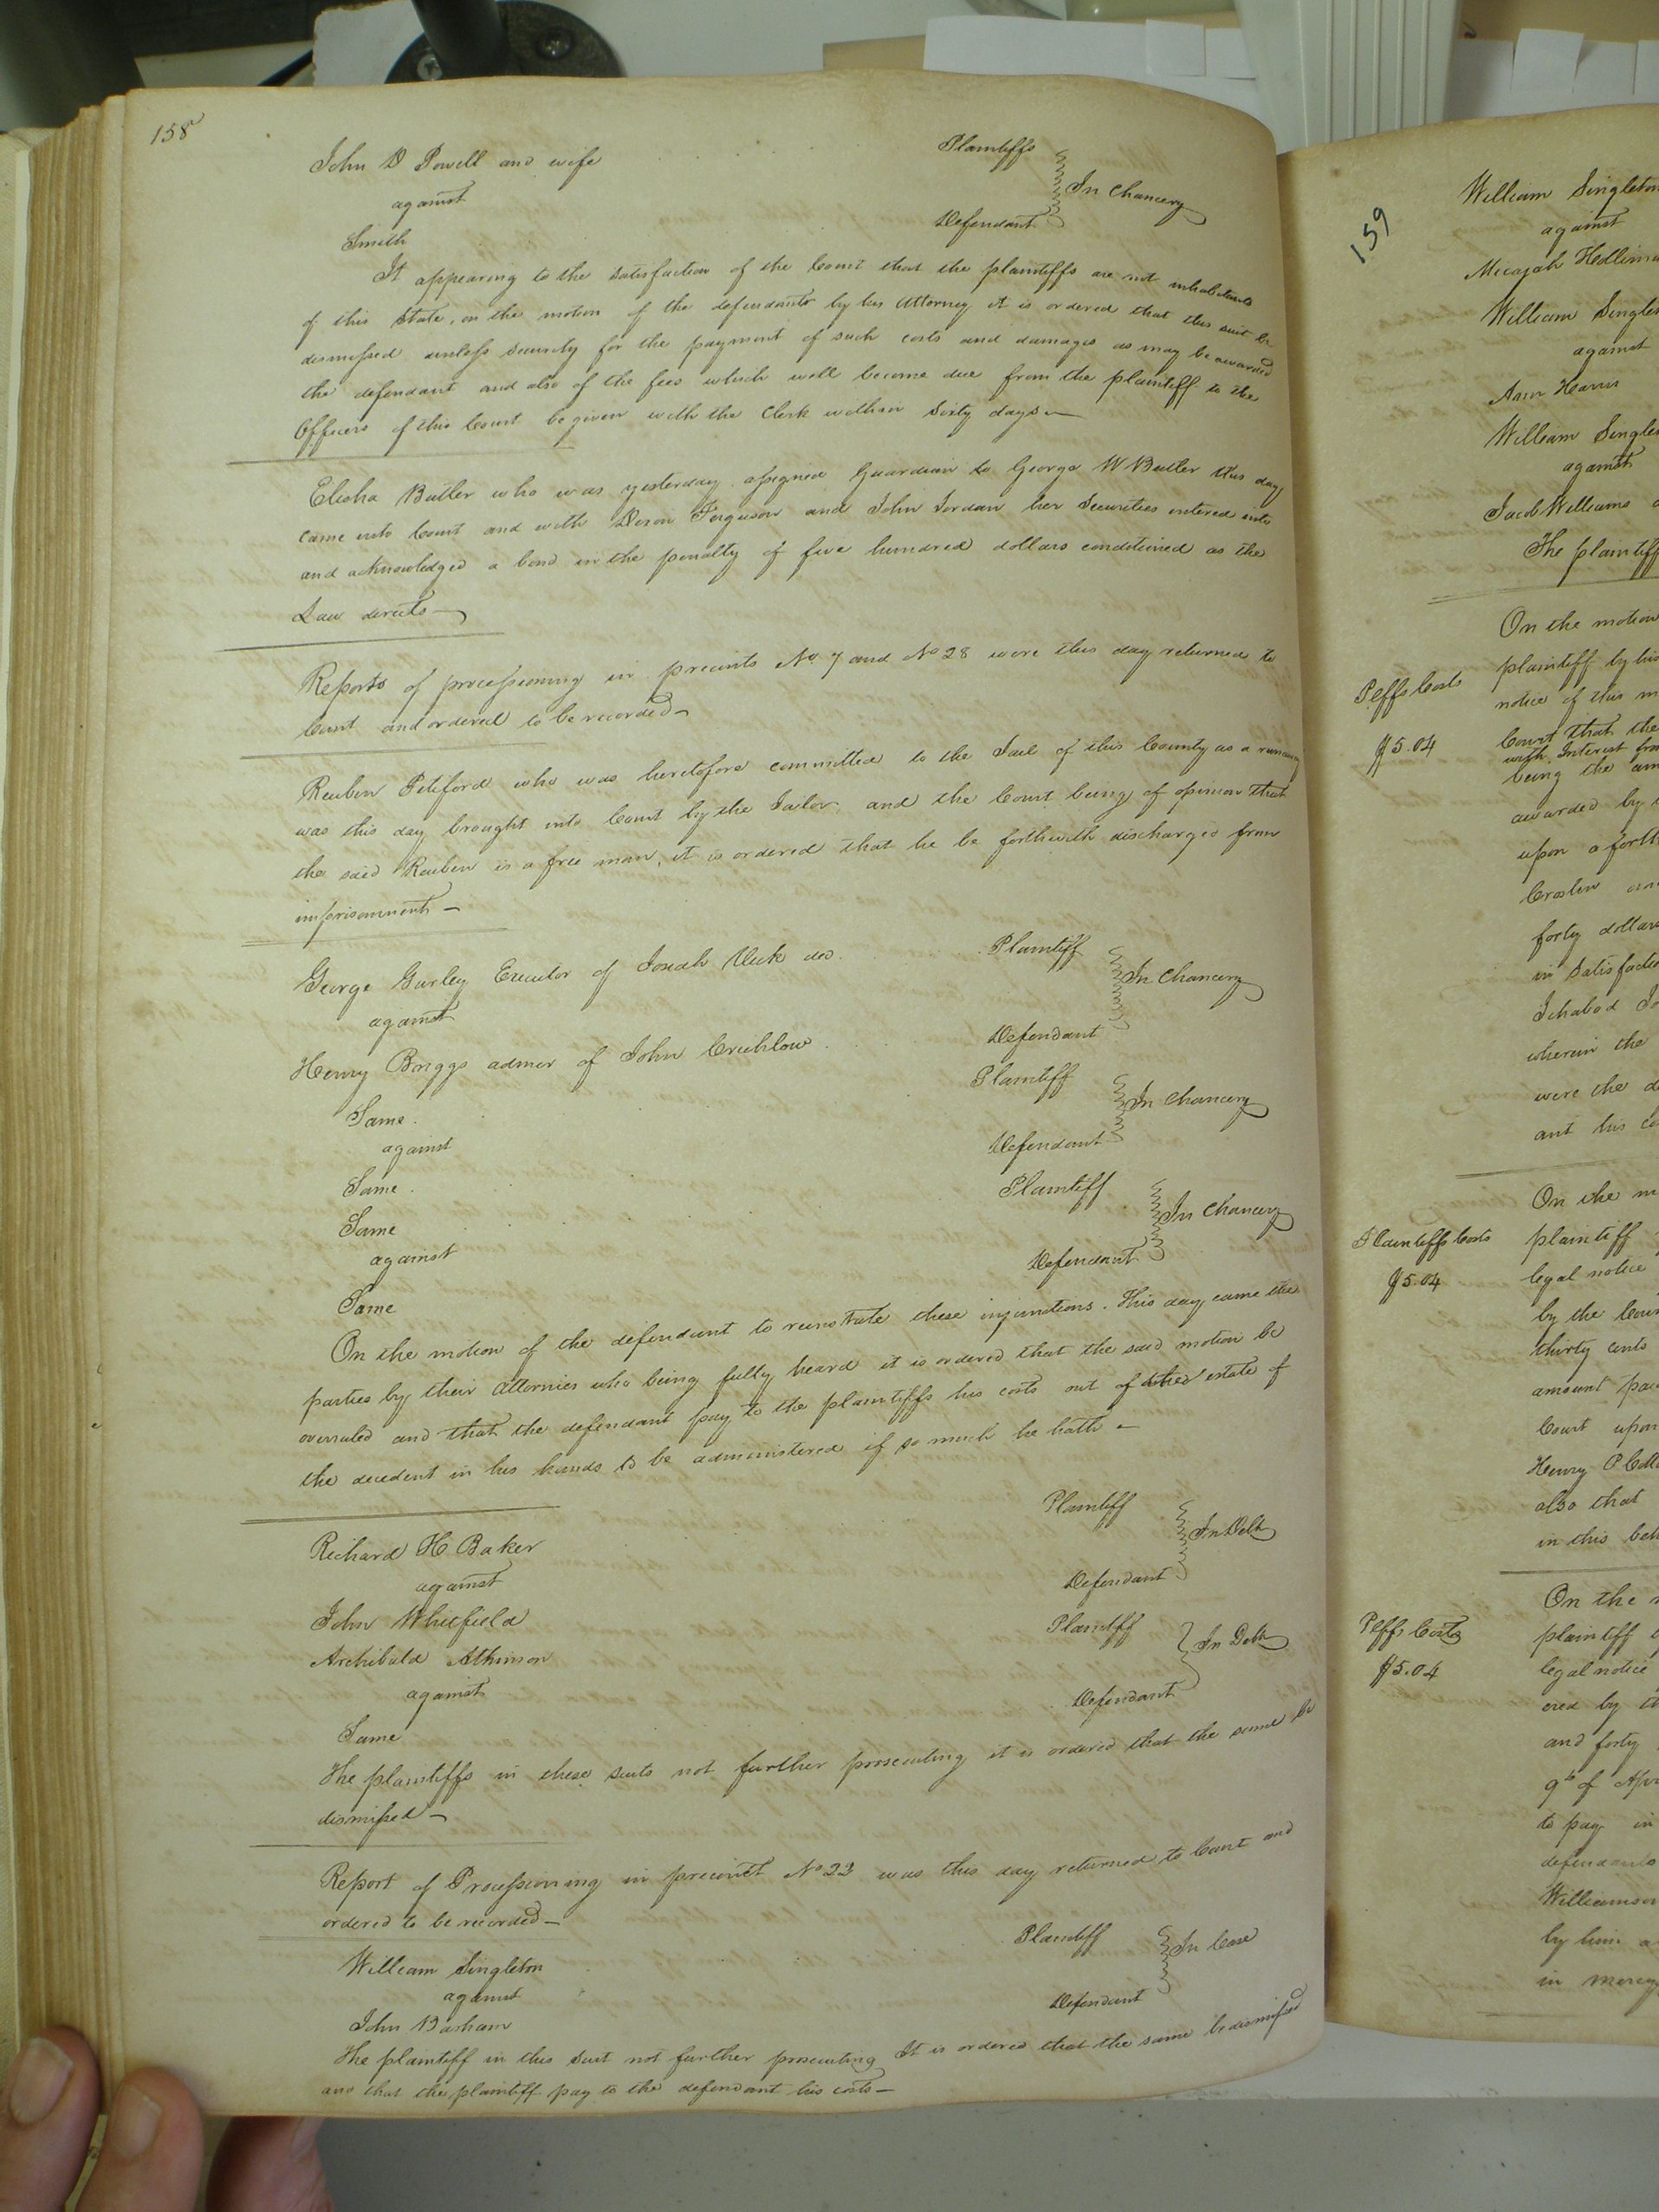 158
John D Powell and wife Plaintiffs
against In Chancery
Smith Defendant
It appearing to the satisfaction of the Court that the plaintiffs are not inhabitants
of this State, on the motion of the defendants by his Attorney it is ordered that this suit be
dismissed unless security for the payment of such costs and damages as may be awarded
the defendant and also of the fees which will become due from the plaintiff to the
Officers of this Court be given with the Clerk within Sixty days—
Elisha Butler who was yesterday assigned Guardian to George W Butler this day
came into Court and with Dixon Ferguson and John Jordan her Securities entered into
and acknowledged a bond in the penalty of five hundred dollars conditioned as the
Law directs—
Reports of processioning in precincts No 7 and No 28 were this day returned to
Court and ordered to be recorded—
Reuben Petiford who was heretofore committed to the Jail of this County as a runaway
was this day brought into Court by the Jailor, and the Court being of opinion that
the said Reuben is a free man, it is ordered that he be forthwith discharged from
imprisonment—
George Gurley Executor of Josiah Vick dec. Plaintiff
against In Chancery
Henry Briggs admor of John Crichlow Defendant
Same Plaintiff
against In Chancery
Same Defendant
Same Plaintiff
against In Chancery
Same Defendant
On the motion of the defendant to reinstate these injunctions. This day came the
parties by their attornies who being fully heard it is ordered that the said motion be
overruled and that the defendant pay to the plaintiffs his costs out of the estate of
the decedent in his hands to be administered if so much he hath—
Richard H Baker Plaintiff
against In Debt
John Whitfield Defendant
Archibald Atkinson Plaintiff
against In Debt
Same Defendant
The plaintiffs in these suits not further prosecuting it is ordered that the same be
dismissed—
Report of Processioning in precinct No 23 was this day returned to Court and
ordered to be recorded—
William Singleton Plaintiff
against In Case
John Basham Defendant
The plaintiff in this suit not further prosecuting It is ordered that the same be dismissed
and that the plaintiff pay to the defendant his costs—
159
William Singleton
against
Micajah
William
against
Ann Harris
William
against
Jacob Williams
The plaintiff
On the motion
Plffs Costs plaintiff by his
notice of this
$5.04 Court that the
with Interest from
being the
awarded by
upon a
forty dollars
in
Ichabod
wherein the
were the
ant his
On the
Plaintiffs Costs plaintiff
$5.04 legal notice
by the
thirty cents
amount
Court upon
Henry P
also that
in this
On the
Plffs Costs plaintiff
$5.04 legal notice
ered by
and forty
9th of
to pay in
defendants
Williamson
by him
in mercy